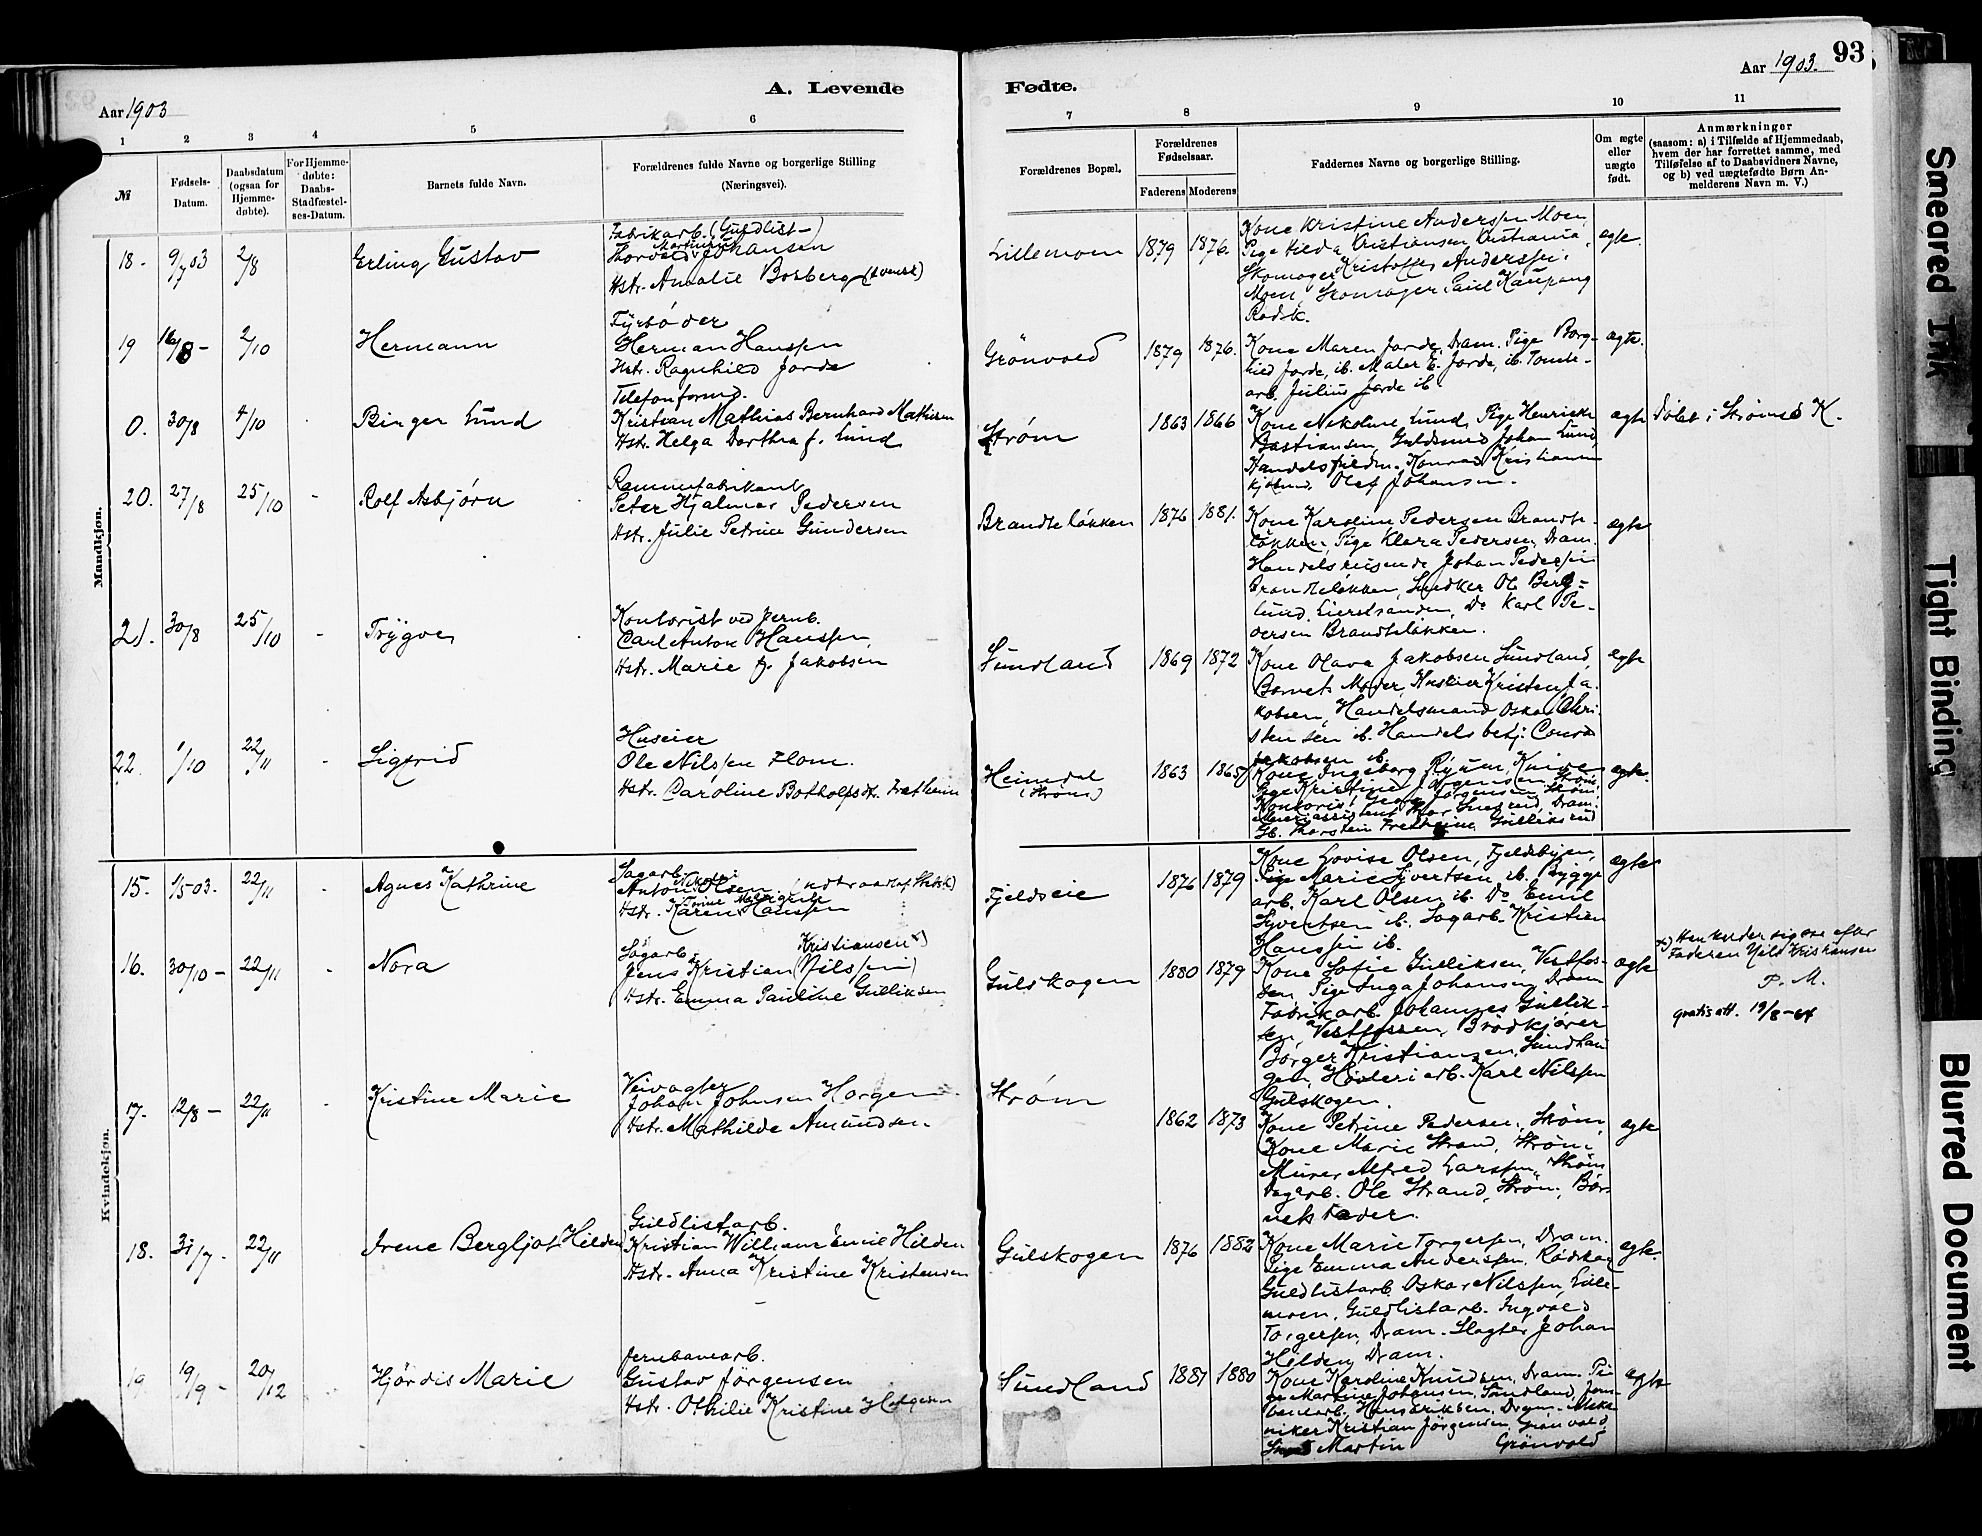 93
A. Levende Fødte.
Aar 1903
Aar 1903.
1 2 3 4 5 6 7 8 9 10 11
№
Fødsels-Datum.
Daabsdatum (ogsaa for Hjemme-døbte).
For Hjemme-døbte: Daabs-Stadfæstel-ses-Datum.
Barnets fulde Navn.
Forældrenes fulde Navne og borgerlige Stilling
(Næringsvei).
Forældrenes Bopæl.
Forældrenes Fødselsaar.
Faderens Moderens
Faddernes Navne og borgerlige Stilling.
Om ægte eller uægte født.
Anmærkninger
(saasom: a) i Tilfælde af Hjemmedaab,
hvem der har forrettet samme, med
Tilføielse af to Daabsvidners Navne,
og b) ved uægtefødte Børn An-
melderens Navn m. V.)
Mandkjøn.
18. 9/7 03 2/8 Erling Gustav
Fabrikarb. (Guldlist-)
Thorvald Martinius Johansen
Hstr. Amalie Bosberg (svensk)
Lillemoen 1879 1876.
Kone Kristine Andersen Moen,
Pige Hilda Kristiansen, Kristiania,
Skomager Kristoffer Anderssen,
Moen, Skomager Paul Kaupang
Rødsk.
ægte.
19 16/8 - 2/10 Hermann
Fyrbøder
Herman Hanssen
Hstr. Ragnhild Jorde
Grönvold 1879 1876.
Kone Maren Jorde, Dram. Pige Borg-
hild Jorde, ib. Maler E. Jorde, ib. Tomte-
arb. Julius Jorde ib.
ægte.
0. 30/8 4/10 Birger Lund
Telefonformd.
Kristian Mathias Bernhard Mathisen
Hstr. Helga Dorthea f. Lund
Strøm 1863 1866
Kone Nikoline Lund, Pige Henrikke
Bastiansen, Guldsmed Johan Lund,
Handelsfuldm. Konrad Kristiansen
Olaf Johansen.
ægte Döbt i Strømsö K.
20. 27/8 25/10 - Rolf Asbjørn
Rammefabrikant
Peter Hjalmar Pedersen
Hstr. Julie Petrine Gundersen
Brandteløkken 1876 1881.
Kone Karoline Pedersen Brandte-
løkken, Pige Klara Pedersen, Dram.
Handelsreisende Johan Pedersen
Brandteløkken, Snedker Ole Berg-
lund, Lierstranden, Do Karl Pe-
dersen Brandteløkken.
ægte
21. 30/8 25/10 - Trygve
Kontorist ved Jernb.
Carl Anton Hanssen
Hstr. Marie f. Jakobsen
Sundland 1869 1872
Kone Olava Jakobsen Sundland,
Barnets Moder, Huseier Kristen Ja-
kobsen, Handelsmand Oskar Chri-
stensen ib. Handelsbetj. Conrad
Jakobsen ib.
ægte
22. 1/10 22/11 - Sigfrid
Huseier
Ole Nilssen Flom.
Hstr. Caroline Botholfsdt. Fretheim
Heimdal (Strøm) 1863 1865
Kone Ingeborg Ryum, Knive
Pige Kristine Jørgensen Strøm,
Kontorist Georg Jørgensen Strøm,
Gb. Thorstein Fretheim Gulliksrud
ægte.
Kvindekjøn.
15. 1/5 03. 22/11 - Agnes Kathrine
Sagarb.
Anton Nikolai Olsen.
Hstr. Karen Hanssen
Fjeldveie 1876 1879
Kone Lovise Olsen, Fjeldebyen,
Pige Marie Syvertsen, ib. Bygge
arb. Karl Olsen ib. Do Emil
Syvertsen ib. Sagarb. Kristian
Hanssen ib.
ægte
16. 30/10 - 22/11 - Nora
Sagarb. Kristiansen x)
Jens Kristian (Nilssen)
Hstr. Emma Pauline Gulliksen
Gulskogen 1880 1879
Kone Sofie Gulliksen, Vestfos-
sen, Pige Inga Johansen, Dram
Fabrikarb. Johannes Gullik-
sen, Vestfossen, Brödkjører
Børger Kristiansen, Sundhau-
gen, Høvleriarb. Karl Nilssen
Gulskogen.
ægte
x) Han kalder sig ogs. efter
Faderen Nils Kristiansen
P. M.
gratis att. 19/8-64
17. 12/8 - 22/11 - Kristine Marie
Veivogter
Johan Johnsen Horgen
Hstr. Mathilde Amundsen.
Strøm 1862 1873
Kone Petrine Pedersen, Strøm,
Kone Marie Strand, Strøm,
Murer Alfred Larssen, Strøm
Dagarb. Ole Strand, Strøm, Bar-
nets Fader.
ægte
18. 31/7 - 22/11 Irene Bergljot Hilden
Guldlistarb.
Kristian William Emil Hilden
Hstr. Anna Kristine Kristensen
Gulskogen 1876 1882
Kone Marie Torgersen, Dram.
Pige Emma Anderssen, Rødskog
Guldlistarb. Oskar Nilssen, Lille-
moen, Guldlistarb. Ingvald
Torgersen, Dram. Slagter Johan
Hilden, Dram.
ægte.
19 19/9 - 20/12 Hjördis Marie
Jernbanearb.
Gustav Jörgensen
Hstr. Othilie Kristine
Sundland 1881 1880
Kone Karoline Knudsen, Dram. Pi-
ge Martine Johansen, Sundland, Jern-
banearb. Hans Eriksen, Dram. Meka-
niker Kristian Jörgensen Grönvold
Martin Grönvold
ægte
Smeared Ink
Tight Binding
Blurred Document